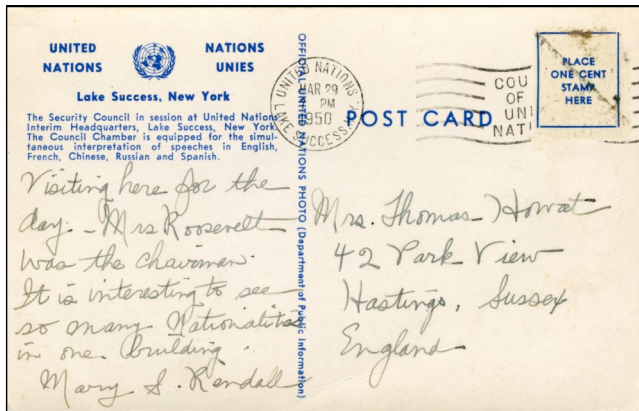 UNITED NATIONS
NATIONS UNIES
Lake Success, New York
The Security Council in session at United Nations
Interim Headquarters, Lake Success, New York.
The Council Chamber is equipped for the simul-
taneous interpretation of speeches in English,
French, Chinese, Russian and Spanish.
Visiting here for the
day. - Mrs Roosevelt
was the chairman.
It is interesting to see
so many Nationalities
in one building.
Mary S. Kendall
OFFICIAL UNITED NATIONS PHOTO (Department of Public Information)
UNITED NATIONS
MAR 29
PM
1950
LAKE SUCCESS, N.Y.
POST CARD
COU
OF
UNI
NATI
PLACE
ONE CENT
STAMP
HERE
Mrs. Thomas Howat
42 Park View
Hastings, Sussex
England